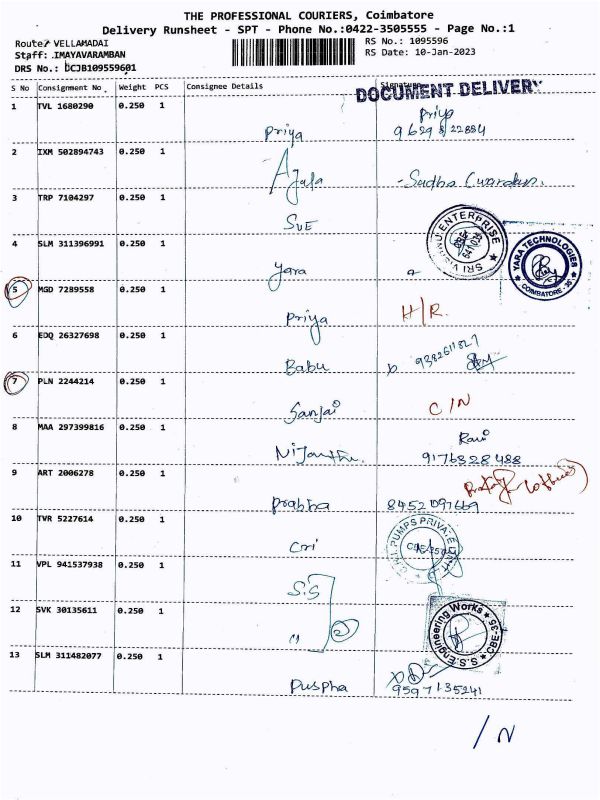 THE PROFESSIONAL COURIERS, Coimbatore
Delivery Runsheet - SPT - Phone No.:0422-3505555 - Page No.:1
Route: VELLAMADAI
Staff: IMAYAVARAMBAN
DRS No.: DCJB109559601
RS No.: 1095596
RS Date: 10-Jan-2023
S No Consignment No. Weight PCS Consignee Details Signature
DOCUMENT DELIVERY
1 TVL 1680290 0.250 1
Priya
Priya
2 IXM 502894743 0.250 1
Ajala
Sudha
3 TRP 7104297 0.250 1
SVE
SRI VISHNU ENTERPRISE
4 SLM 311396991 0.250 1
Yara
YARA TECHNOLOGIES
COIMBATORE - 35
5 MGD 7289558 0.250 1
Priya H/R.
6 EDQ 26327698 0.250 1
Babu
7 PLN 2244214 0.250 1
Sanjai C/N
8 MAA 297399816 0.250 1
Ravi
9176328488
9 ART 2006278 0.250 1
Prabha 8452097669
10 TVR 5227614 0.250 1
Cri
C.R.I. PUMPS PRIVATE LIMITED
11 VPL 941537938 0.250 1
S.S
12 SVK 30135611 0.250 1
"
2
S.S.S. Engineering Works
CBE-35
13 SLM 311482077 0.250 1
Puspha 9597135241
/ N